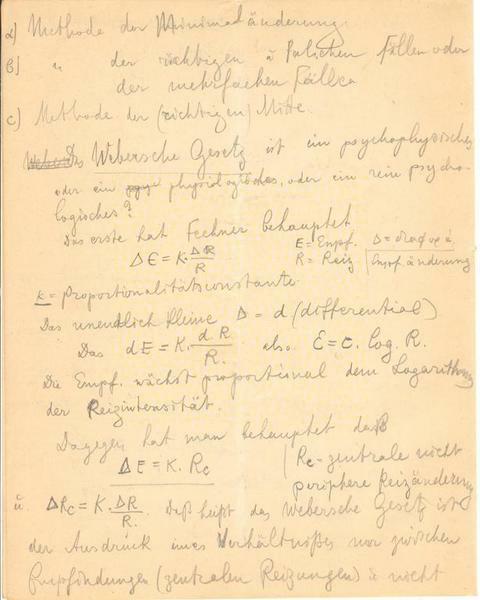 a) Methode der Minimaländerung.
b) " der richtigen u falschen Fällen oder
der mehrfachen Fälle
c) Methode der (richtigen) Mitte.
Das Webersche Gesetz ist ein psychophysisches
oder ein physiologisches, oder ein rein psycho-
logisches?
Das erste hat Fechner behauptet
ΔE = K. ΔR/R
E = Empf. Δ = διαφορά
R = Reiz | Empf. änderung
k = Proportionalitätsconstante.
Das unendlich kleine Δ = d (differential)
Das dE = K. dR/R. also E = C. log. R.
Die Empf. wächst proportional dem Logarithmus
der Reizintensität.
Dagegen hat man behauptet daß
ΔE = K. Rc
Rc = zentrale nicht
periphere Reizänderung
u. ΔRc = K. ΔR/R. Daß heißt das Webersche Gesetz ist
der Ausdruck eines Verhältnißes nur zwischen
Empfindungen (zentralen Reizungen) u nicht